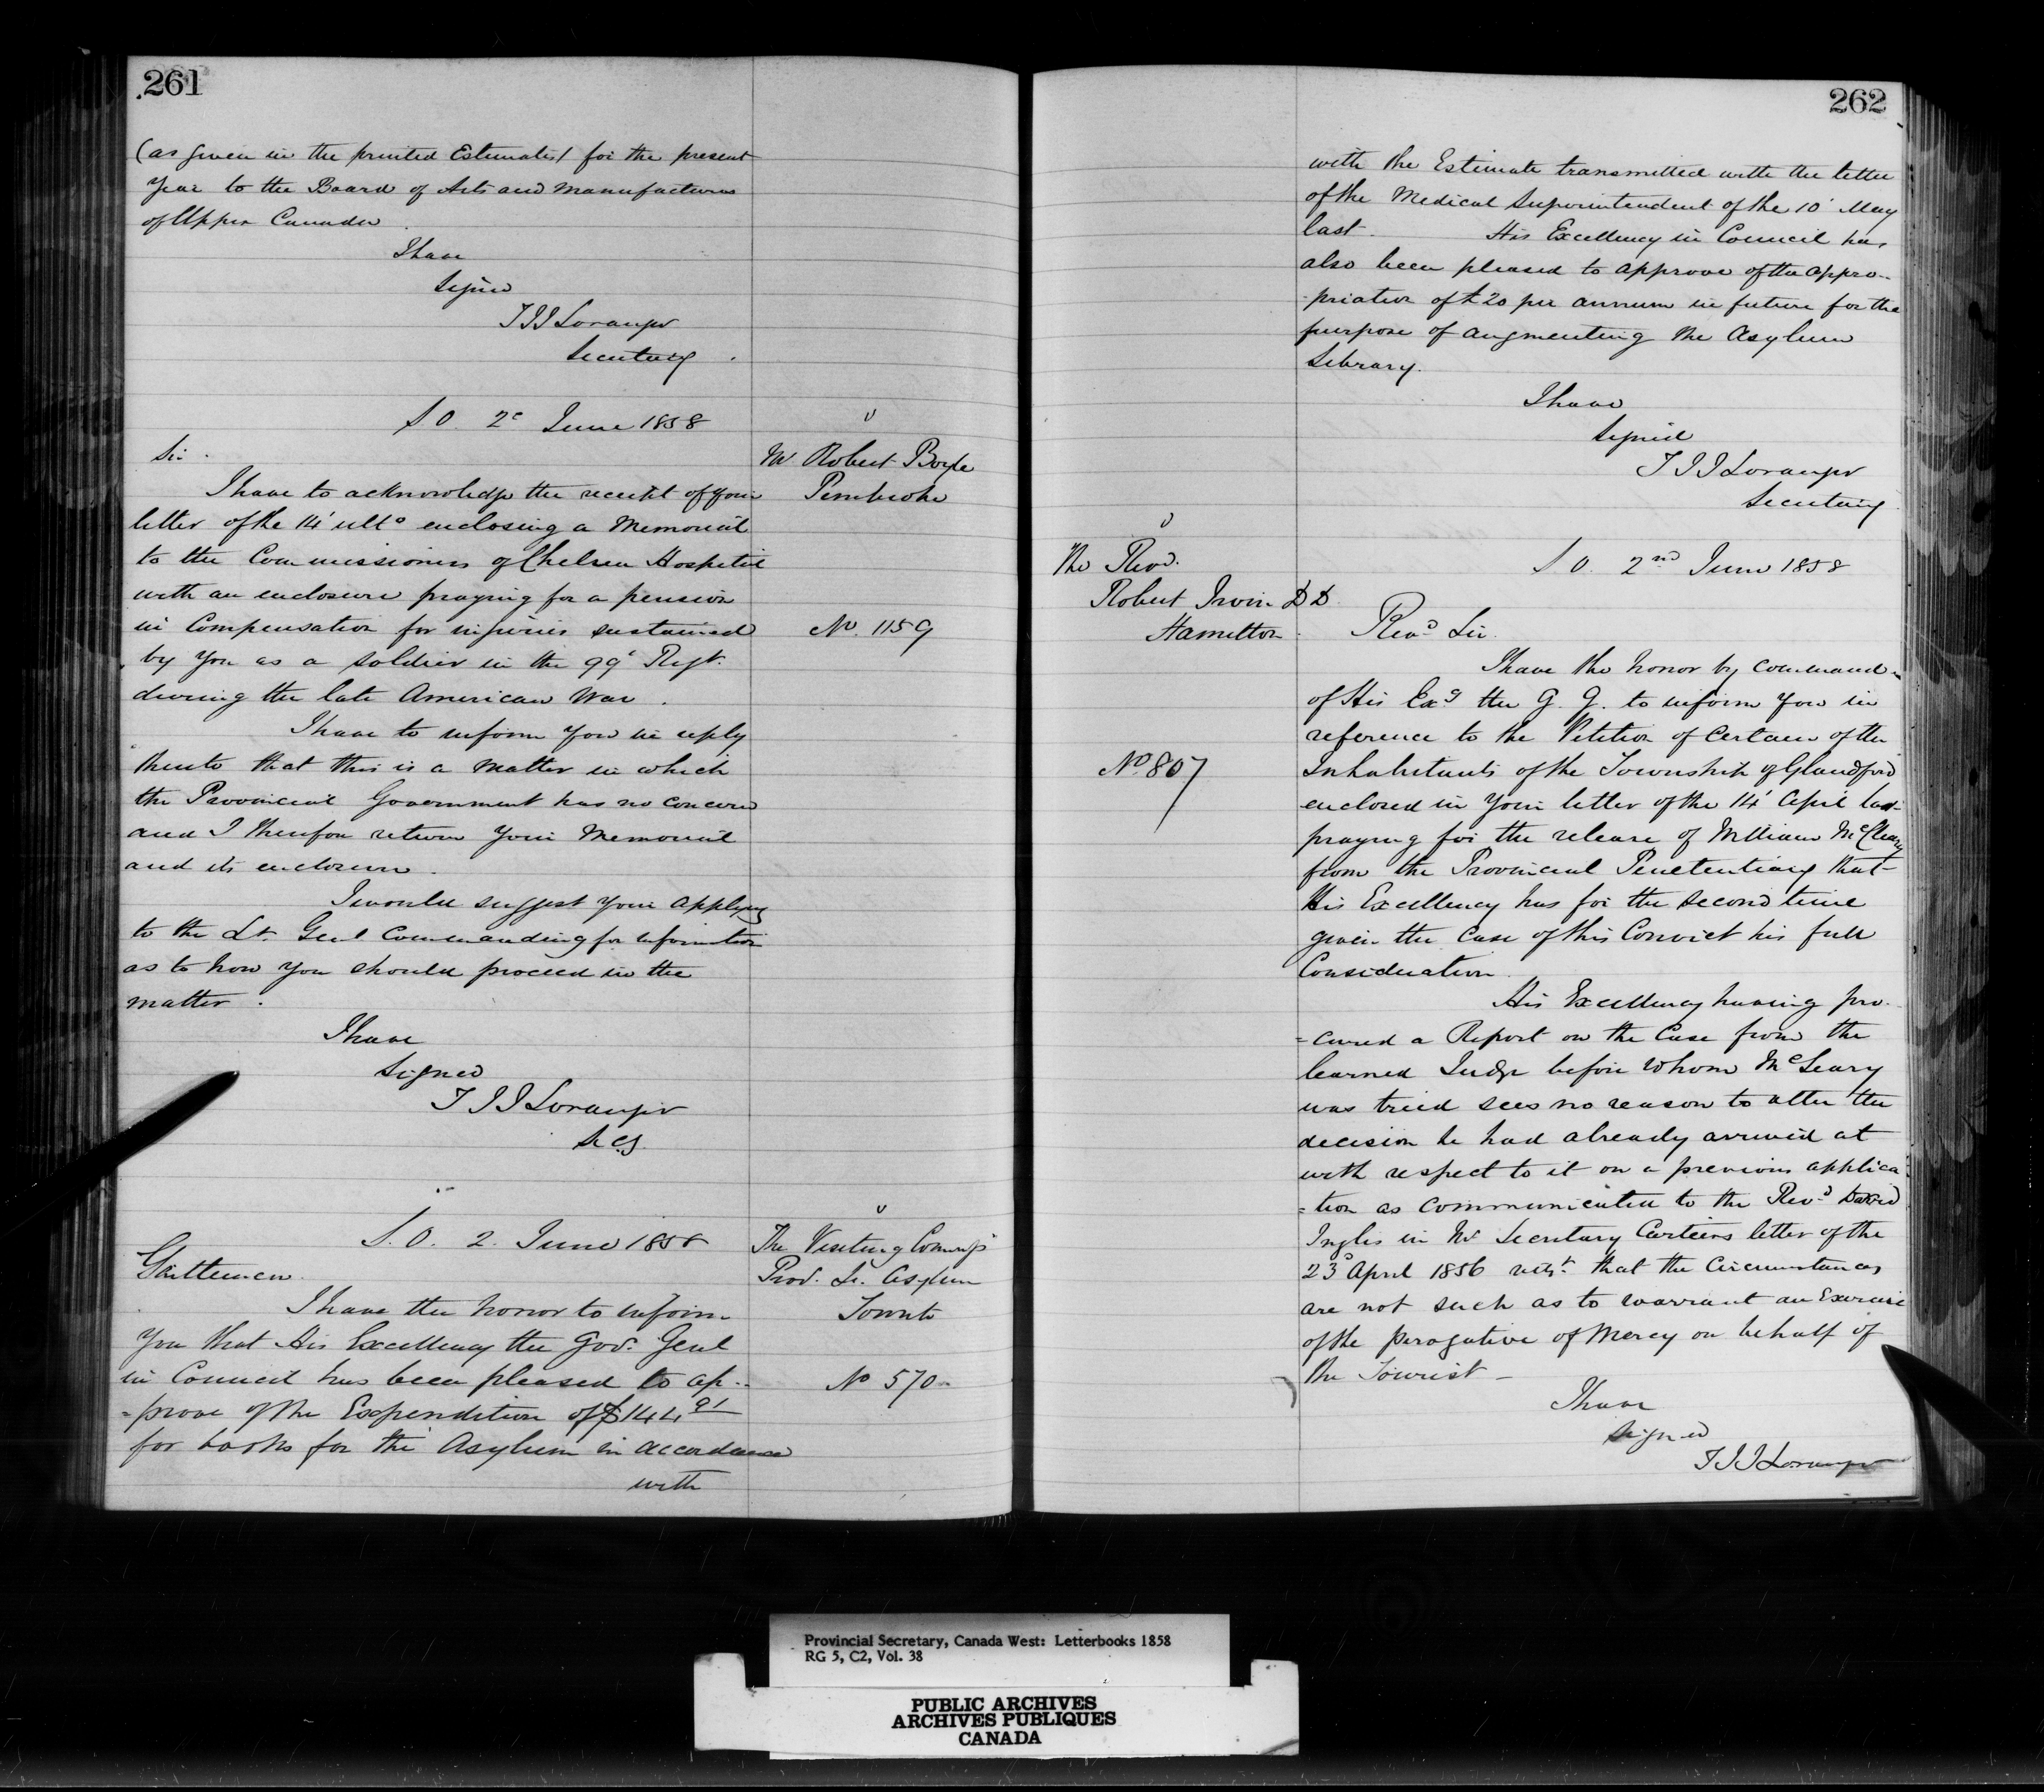 261
(as given in the printed Estimates) for the present
Year to the Board of Arts and Manufactures
of Upper Canada.
I have
Signed
T J J Loranger
Secretary.
S. O. 2d June 1858
Mr Robert Boyle
Pembroke
No. 1159
Sir.
I have to acknowledge the receipt of your
letter of the 14' ulto enclosing a Memorial
to the Commissioners of Chelsea Hospital
with an enclosure praying for a pension
in Compensation for injuries sustained
by you as a soldier in the 99' Regt.
during the late American War.
I have to inform you in reply
thereto that this is a matter in which
the Provincial Government has no concern
and I therefore return your Memorial
and its enclosure.
I would suggest your applying
to the Lt. Genl Commanding for information
as to how you should proceed in the
matter.
I have
Signed
T J J Loranger
Secy.
S. O. 2. June 1858
The Visiting Commrs
Prov. Lc. Asylum
Toronto
No 570
Gentlemen.
I have the honor to inform
You that His Excellency the Gov. Genl
in Council has been pleased to ap-
=prove of the Expenditure of $144 91
for books for the Asylum in accordance
with
262
with the Estimate transmitted with the letter
of the Medical Superintendent of the 10' May
last. His Excellency in Council has
also been pleased to approve of the appro-
-priation of £20 per annum in future for the
purpose of augmenting the Asylum
Library.
I have
Signed
T J J Loranger
Secretary
S. O. 2nd June 1858
The Revd.
Robert Irvin D D.
Hamilton.
No. 807
Revd Sir.
I have the honor by command
of His Exy the G. G. to inform you in
reference to the Petition of Certain of the
Inhabitants of the Township of Glandford
enclosed in your letter of the 14' April last
praying for the release of William McCleary
from the Provincial Penetentiary that
His Excellency has for the second time
given the Case of this Convict his full
Consideration.
His Excellency having pro-
=cured a Report on the Case from the
learned Judge before whom McLeary
was tried sees no reason to alter the
decision he had already arrived at
with respect to it on a previous applica
=tion as communicated to the Revd David
Inglis in Mr Secretary Cartiers letter of the
23d April 1856 that the Circumstances
are not such as to warrant an Exercise
of the perogative of Mercy on behalf of
the
I have
Signed
T J J Loranger
Provincial Secretary, Canada West: Letterbooks 1858
RG 5, C2, Vol. 38
PUBLIC ARCHIVES
ARCHIVES PUBLIQUES
CANADA